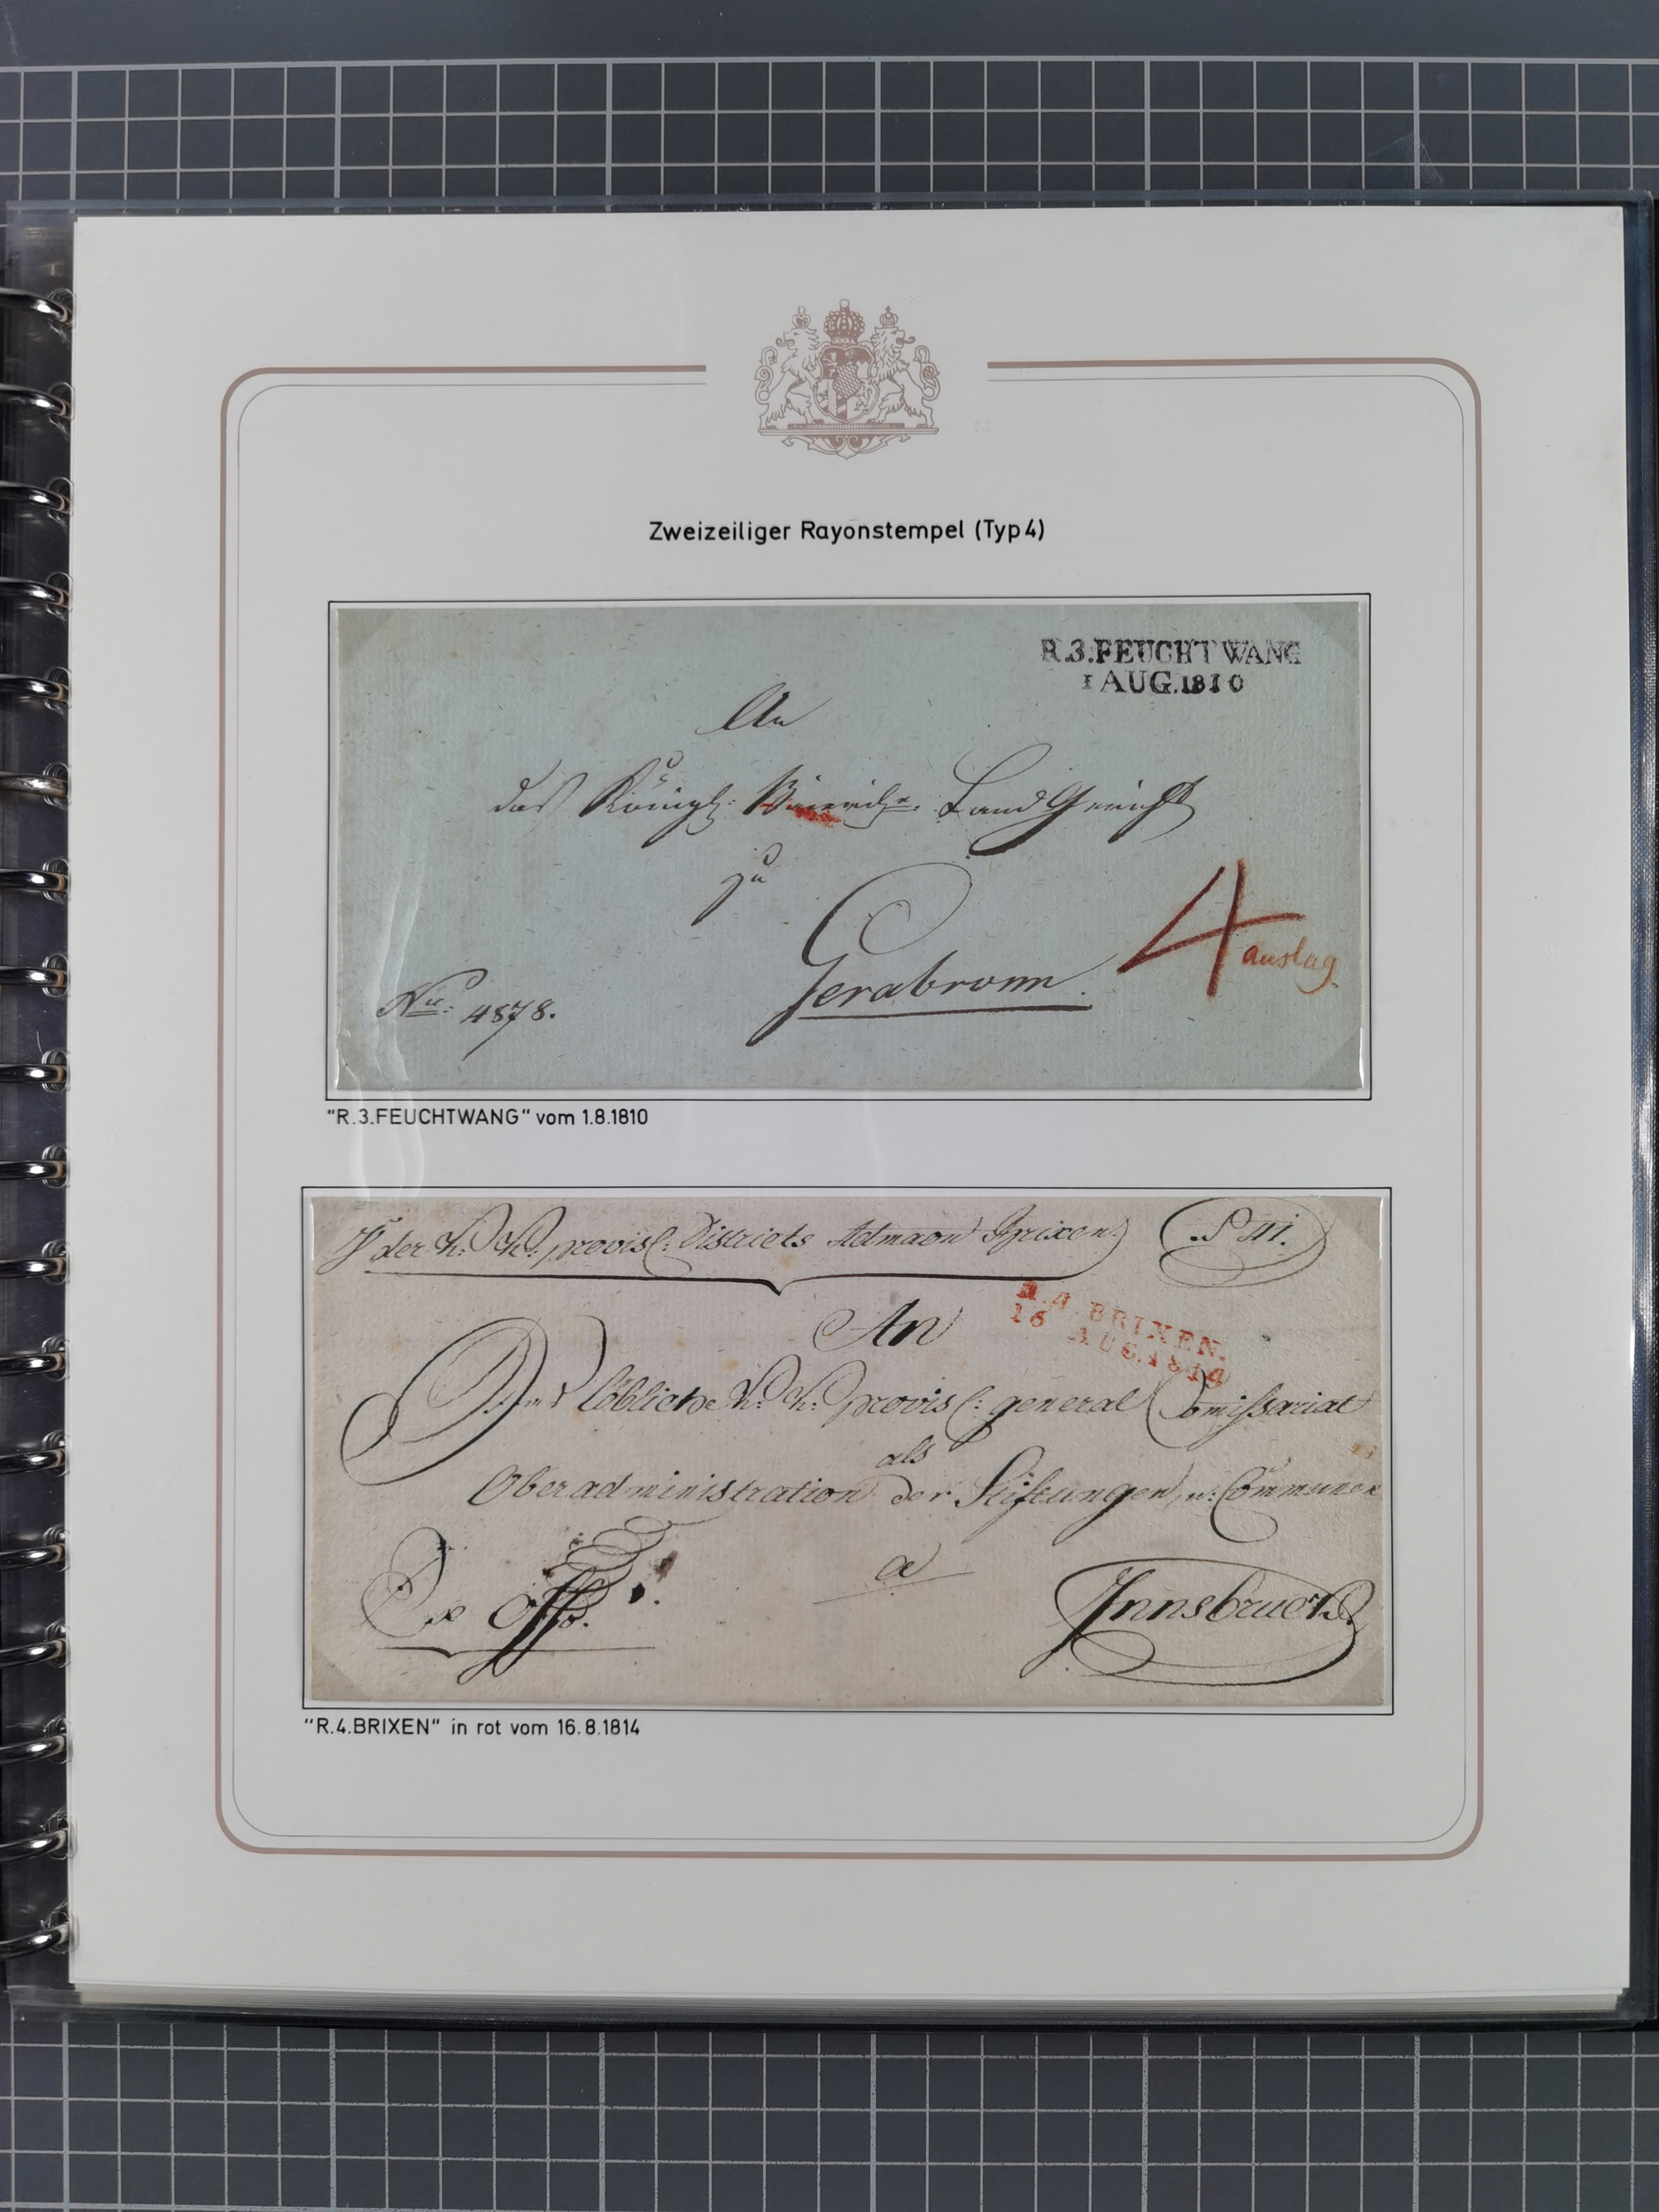 Zweizeiliger Rayonstempel (Typ 4)
R.3.FEUCHTWANG
1 AUG.1810
An
das Königl: Baierische Land Gericht
zu
Gerabronn.
4 auslag.
Nro. 4878.
"R.3.FEUCHTWANG" vom 1.8.1810
der k: k: provisl: Districts Admaon Brixen
An
R.4.BRIXEN.
16 AUG.1814
löbliche k: k: provisl: general Commissariat
als
Oberadministration der Stiftungen u: Communen
a
Ex Offo.
Innsbruck.
"R.4.BRIXEN" in rot vom 16.8.1814